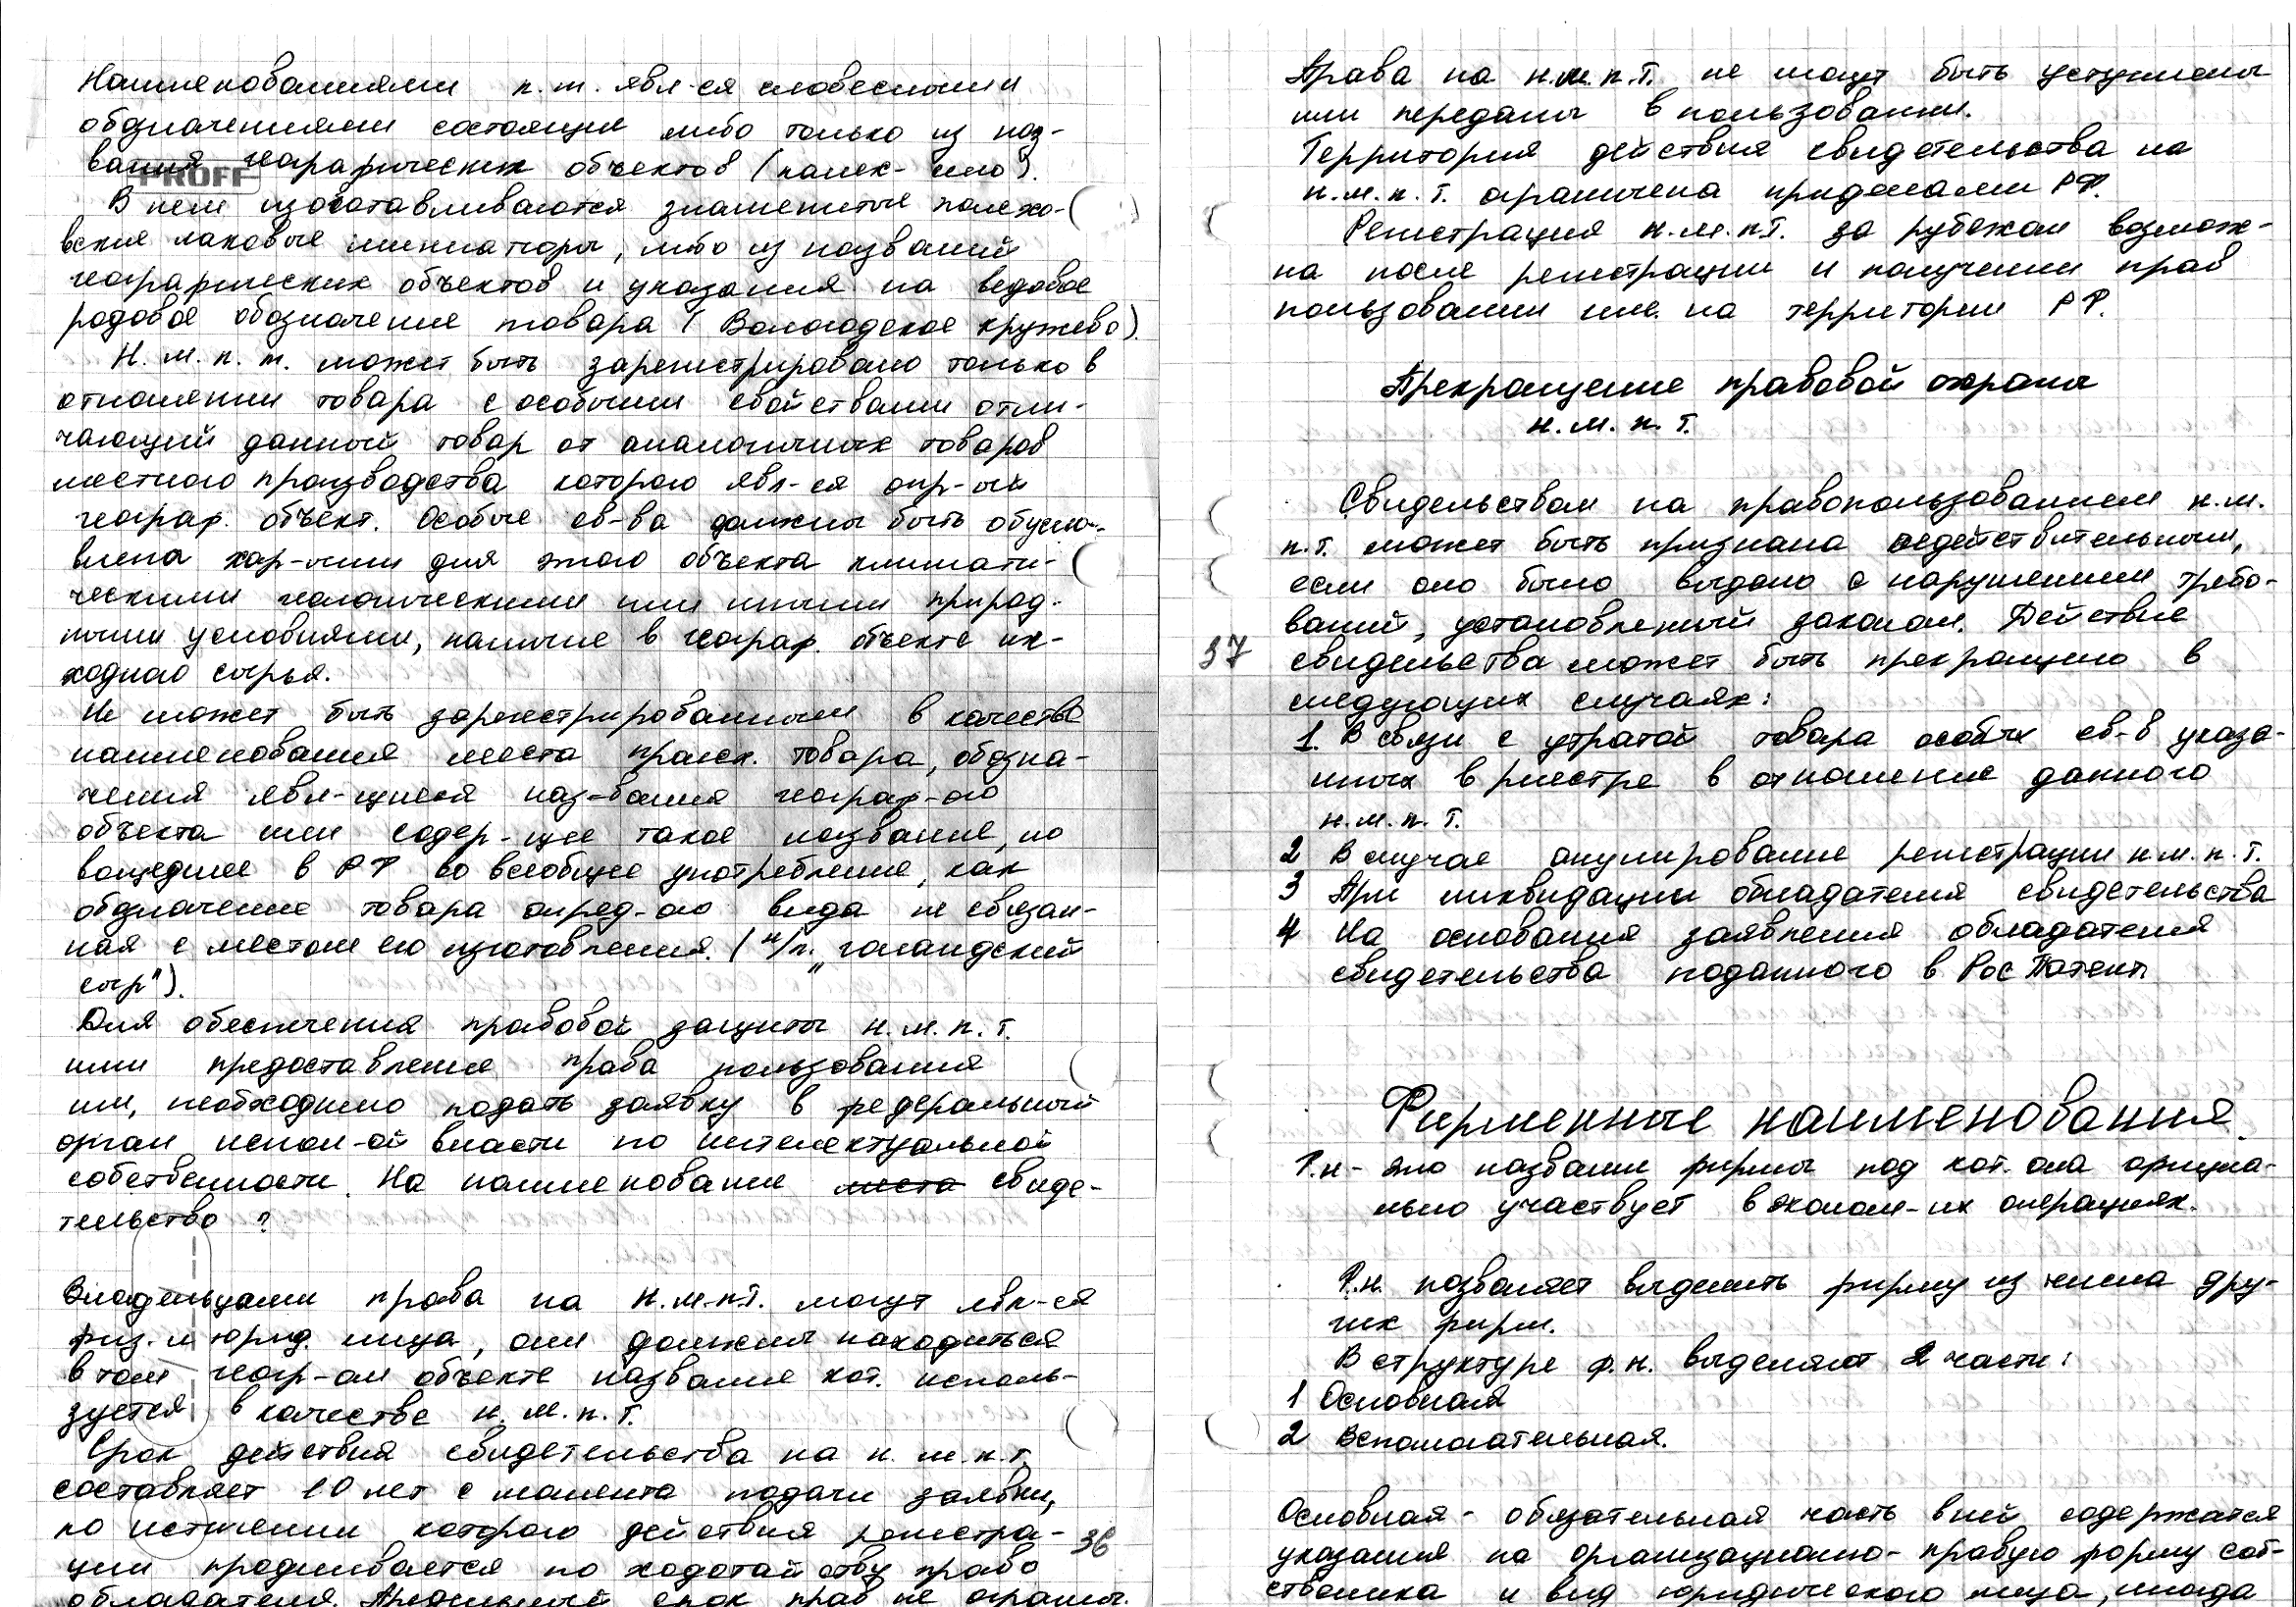 Наименованиями п.т. явл-ся словесными
обозначениями состоящие либо только из наз-
вания географических объектов (палех- село).
PROFF
В нем изготавливаются знаменитые палехо-
вские лаковые миниатюры, либо из названий
географических объектов и указания на видовое
родовое обозначение товара (Вологодское кружево).
Н.м.п.т. может быть зарегистрировано только в
отношении товара с особыми свойствами отли-
чающий данный товар от аналогичных товаров
местного производства которого явл-ся опр-ый
географ. объект. Особые св-ва должны быть обусло-
влена хар-ыми для этого объекта климати-
ческими геологическими или иными природ-
ными условиями, наличие в географ. объекте ис-
ходного сырья.
Не может быть зарегистрированным в качестве
наименования места происх. товара, обозна-
чения явл-щиеся наз-вания географ-ого
объекта или содер-щее такое название, но
вошедшее в РФ во всеобщее употребление, как
обозначение товара опред-ого вида не связан-
ная с местом его изготовления. (н/п. „голандский
сыр").
Для обеспечения правовой защиты н.м.п.т.
или предоставление права пользования
им, необходимо подать заявку в федеральный
орган испол-ой власти по интелектуальной
собственности. На наименование места свиде-
тельство ?
Владельцами права на н.м.п.т. могут явл-ся
физ. и юрид. лица, они должны находиться
в том геогр-ом объекте название кот. исполь-
зуется в качестве н.м.п.т.
Срок действия свидетельства на н.м.п.т.
составляет 10 лет с момента подачи заявки,
по истечении которого действия регистра-
ции продливается по ходотайству право
обладателя. Предельный срок прав не огранич.
36
Права на н.м.п.т. не могут быть уступлены
или переданы в пользовании.
Территория действия свидетельства на
н.м.п.т. ограничена приделами РФ.
Регистрация н.м.п.т. за рубежом возмож-
на после регистрации и получении прав
пользовании им. на территории РФ.
Прекращение правовой охраны
н.м.п.т.
Свидельством на правопользованием н.м.
п.т. может быть признана недействительным,
если оно было выдано с нарушением требо-
ваний, установленный законом. Действие
свидельства может быть прекращено в
следующих случаях:
37
1. В связи с утратой товара особых св-в указа-
нных в реестре в отношение данного
н.м.п.т.
2 В случае анулирование регистрации н.м.п.т.
3 При ликвидации обладателя свидетельства
4 На основания заявления обладателя
свидетельства поданного в РосПатент.
Фирменные наименования.
Ф.н- это название фирмы под кот. она официа-
льно участвует в эконом-их операциях.
Ф.н. позваляет выделить фирму из числа дру-
гих фирм.
В структуре ф.н. выделяют 2 части:
1 Основная
2 Вспомогательная.
Основная- обязательная часть в ней содержатся
указания на организационно-правую форму соб-
ственика и вид юридического лица, иногда